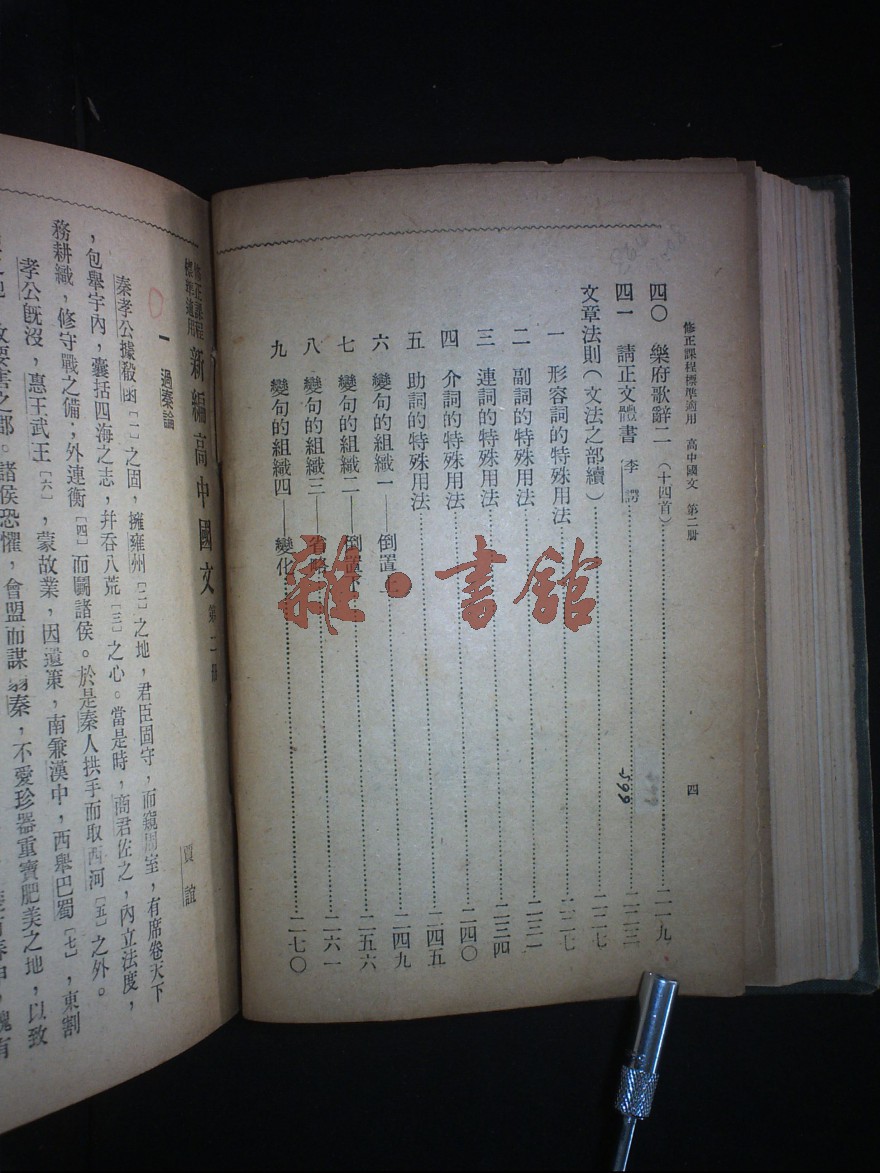 修正課程標準適用 高中國文 第二册
四
四〇 樂府歌辭二（十四首）……二一九
四一 請正文體書 李諤……二二三
599
文章法則（文法之部續）……二二七
一 形容詞的特殊用法……二二七
二 副詞的特殊用法……二三一
三 連詞的特殊用法……二三四
四 介詞的特殊用法……二四〇
五 助詞的特殊用法……二四五
六 變句的組織一——倒置上……二四九
七 變句的組織二——倒置下……二五六
八 變句的組織三——省略……二六一
九 變句的組織四——變化……二七〇
雜·書館
修正課程標準適用 新編高中國文 第二册
一 過秦論
賈誼
秦孝公據殽函〔一〕之固，擁雍州〔二〕之地，君臣固守，而窺周室，有席卷天下
，包舉宇內，囊括四海之志，幷吞八荒〔三〕之心。當是時，商君佐之，內立法度，
務耕織，修守戰之備；外連衡〔四〕而鬭諸侯。於是秦人拱手而取西河〔五〕之外。
孝公既沒，惠王武王〔六〕，蒙故業，因遺策，南兼漢中，西舉巴蜀〔七〕，東割
之地，收要害之郡。諸侯恐懼，會盟而謀弱秦，不愛珍器重寶肥美之地，以致